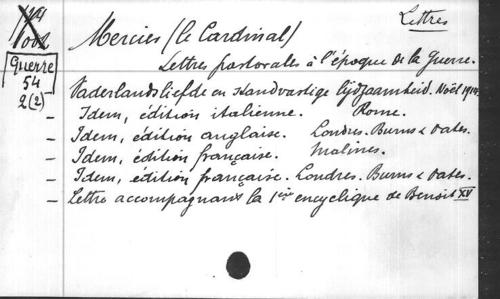 Lettres
Mercier (le Cardinal)
Lettres pastorales à l'époque de la Guerre.
Guerre
54
2(2)
Vaderlandsliefde en standvastige lijdzaamheid. Noël 1914.
— Idem, édition italienne. Rome.
— Idem, édition anglaise. Londres. Burns & Oates.
— Idem, édition française. Malines.
— Idem, édition française. Londres. Burns & Oates.
— Lettre accompagnant la 1ère encyclique de Benoit XV